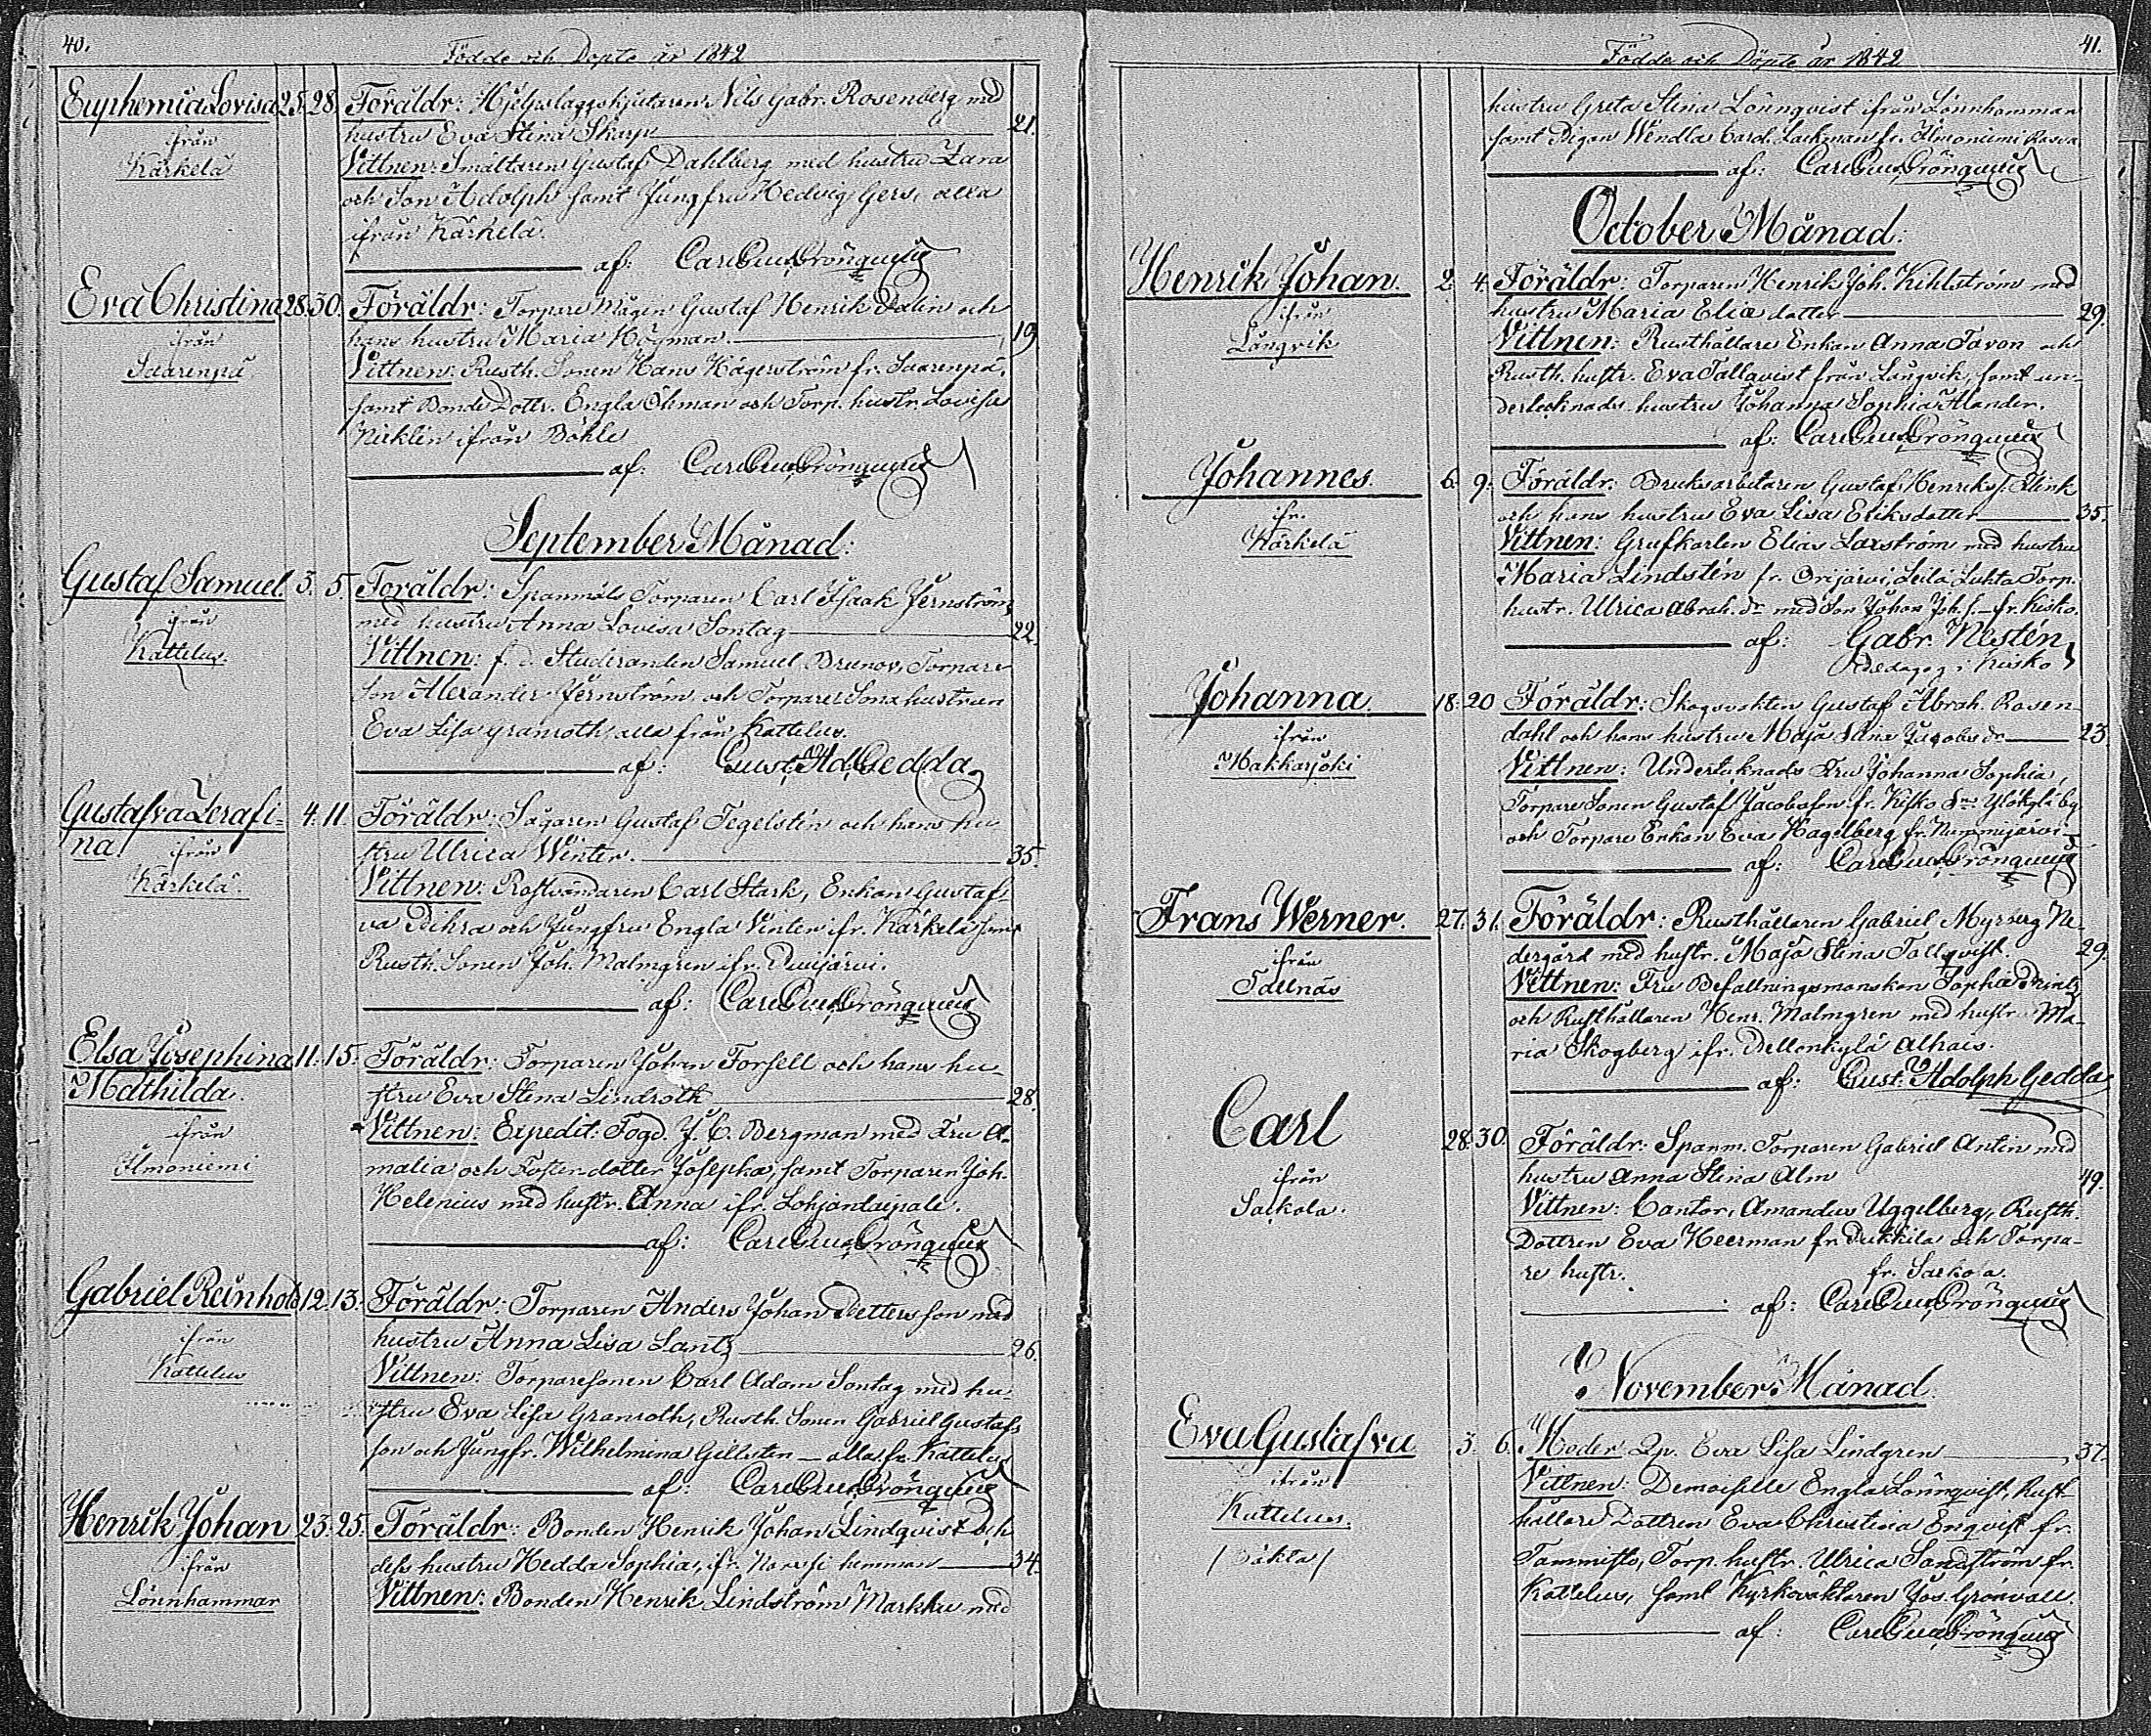 40.
Födde och Döpte år 1842
Euphemia Lovisa 25. 28. Föräldr: Hjelpslaggskjutaren Nils Gabr. Rosenberg med
ifrån
Kärkelä
hustru Eva Stina Skarp 21.
Vittnen: Smältaren Gustaf Dahlberg med hustru Zara
och Son Adolph samt Jungfru Hedvig Gers, alla
ifrån Kärkelä.
af: Carl Gust. Grönqvist
Eva Christina 28. 30. Föräldr: Torpare Mågen Gustaf Henrik Dalin och
ifrån
Saarenpä
hans hustru Maria Högman. 19.
Vittnen: Rusth. Sonen Hans Hägerström fr. Saarenpä,
samt Bonde Dottr. Engla Öhman och Torp. hustr. Lovisa
Nicklin ifrån Böhle
af: Carl Gust. Grönqvist
September Månad:
Gustaf Samuel. 3. 5. Föräldr: Spanmåls Torparen Carl Isaak Jernström
ifrån
Kattelus.
med hustru Anna Lovisa Sontag 22.
Vittnen: f. d. Studeranden Samuel Brunov, Torpare
Son Alexander Jernström och Torpare Sona hustrun
Eva Lisa Granroth alla från Kattelus.
af: Gust. Ad. Gedda
Gustafva Zerafi- 4. 11. Föräldr: Sågaren Gustaf Tegelstén och hans hu-
na.
ifrån
Kärkelä.
stru Ulrica Winter. 35.
Vittnen: Rostvändaren Carl Stark, Enkan Gustaf-
va Dihra och Jungfru Engla Vinter ifr. Kärkelä samt
Rusth. Sonen Joh. Malmgren ifr.
af: Carl Gust. Grönqvist
Elsa Josephina 11. 15. Föräldr: Torparen Johan Forsell och hans hu-
Mathilda.
ifrån
Ilmoniemi
stru Eva Stina Lindroth 28.
Vittnen: Expedit: Fogd. J. C. Bergman med Fru A-
malia och Foster dotter Josepha, samt Torparen Joh.
Helenius med hustr. Anna ifr. Lohjantaipale.
af: Carl Gust. Grönqvist
Gabriel Reinhold 12. 13. Föräldr: Torparen Anders Johan Pettersson med
ifrån
Kattelus
hustru Anna Lisa Lantz 26.
Vittnen: Torparesonen Carl Adam Sontag med hu-
stru Eva Lisa Granroth, Rusth. Sonen Gabriel Gustafs
son och Jungfr. Wilhelmina Gillsten – alla fr. Kattelus
af: Carl Gust. Grönqvist
Henrik Johan 23. 25. Föräldr: Bonden Henrik Johan Lindqvist och
ifrån
Lönnhammar
dess hustru Hedda Sophia, ifr. hemman 34.
Vittnen: Bonden Henrik Lindström Markku med
41.
Födde och Döpte år 1842
hustru Greta Stina Lönnqvist ifrån Lönnhammar
samt Pigan Wendla Carol. Lackman fr. Ilmoniemi
af: Carl Gust. Grönqvist
October Månad:
Henrik Johan. 2. 4. Föräldr: Torparen Henrik Joh. Kihlström med
ifrån
Långvik
hustru Maria Eliæ dotter 29.
Vittnen: Rusthållare Enkan Anna Tavon och
Rusth. hustr. Eva Tallqvist från Långvik, samt un-
dertecknads hustru Johanna Sophia Ålander.
af: Carl Gust. Grönqvist
Johannes. 6. 9. Föräldr: Bruksarbetaren Gustaf Henriks s. Flink
ifr.
Kärkelä
och hans hustru Eva Lisa Eriksdotter 35.
Vittnen: Grufkarlen Elias Laxström med hustru
Maria Lindstén fr. Orijärvi, Leilä Luhta Torp.
hustr. Ulrica Abrah. dr med Son Johan Joh. s. – fr. Kisko.
af: Gabr. Nestén,
Pedagog i Kisko
Johanna. 18. 20 Föräldr: Skogsvakten Gustaf Abrah. Rosen-
ifrån
Makkarjoki
dahl och hans hustru Maja Jacobs dr 23.
Vittnen: Undertecknads Fru Johanna Sophia,
Torpare Sonen Gustaf Jacobsson fr. Kisko Sn by
och Torpare Enkan Eva Hagelberg fr. Nummijärvi
af: Carl Gust. Grönqvist
Frans Werner. 27. 31. Föräldr: Rusthållaren Gabriel Myrberg Ne-
ifrån
Tallnäs
dergård med hustr. Maja Stina Tallqvist. 29.
Vittnen: Fru Befallningsmanskan Sophie Printz
och Rusthållaren Henr. Malmgren med hustr. Ma-
ria Skogberg ifr. Dellenkylä Alhais.
af: Gust. Adolph Gedda
Carl 28. 30. Föräldr: Spanm. Torparen Gabriel Antin med
ifrån
Sackola.
hustru Anna Stina Alm 49.
Vittnen: Cantor, Amandus Uggelberg, Rusth.
Dottren Eva Heerman fr. Pukkila och Torpa-
re hustr. fr. Sackola.
af: Carl Gust. Grönqvist
November Månad
Eva Gustafva 3. 6. Moder Qp. Eva Lisa Lindgren 37.
ifrån
Kattelus.
/oäkta/
Vittnen: Demoiselle Engla Lönnqvist, Rust-
hållare Dottren Eva Christina Enqvist fr.
Tammisto, Torp. hustr. Ulrica Sandström fr.
Kattelus, samt Kyrkoväktaren Jos. Grönvall.
af: Carl Gust. Grönqvist